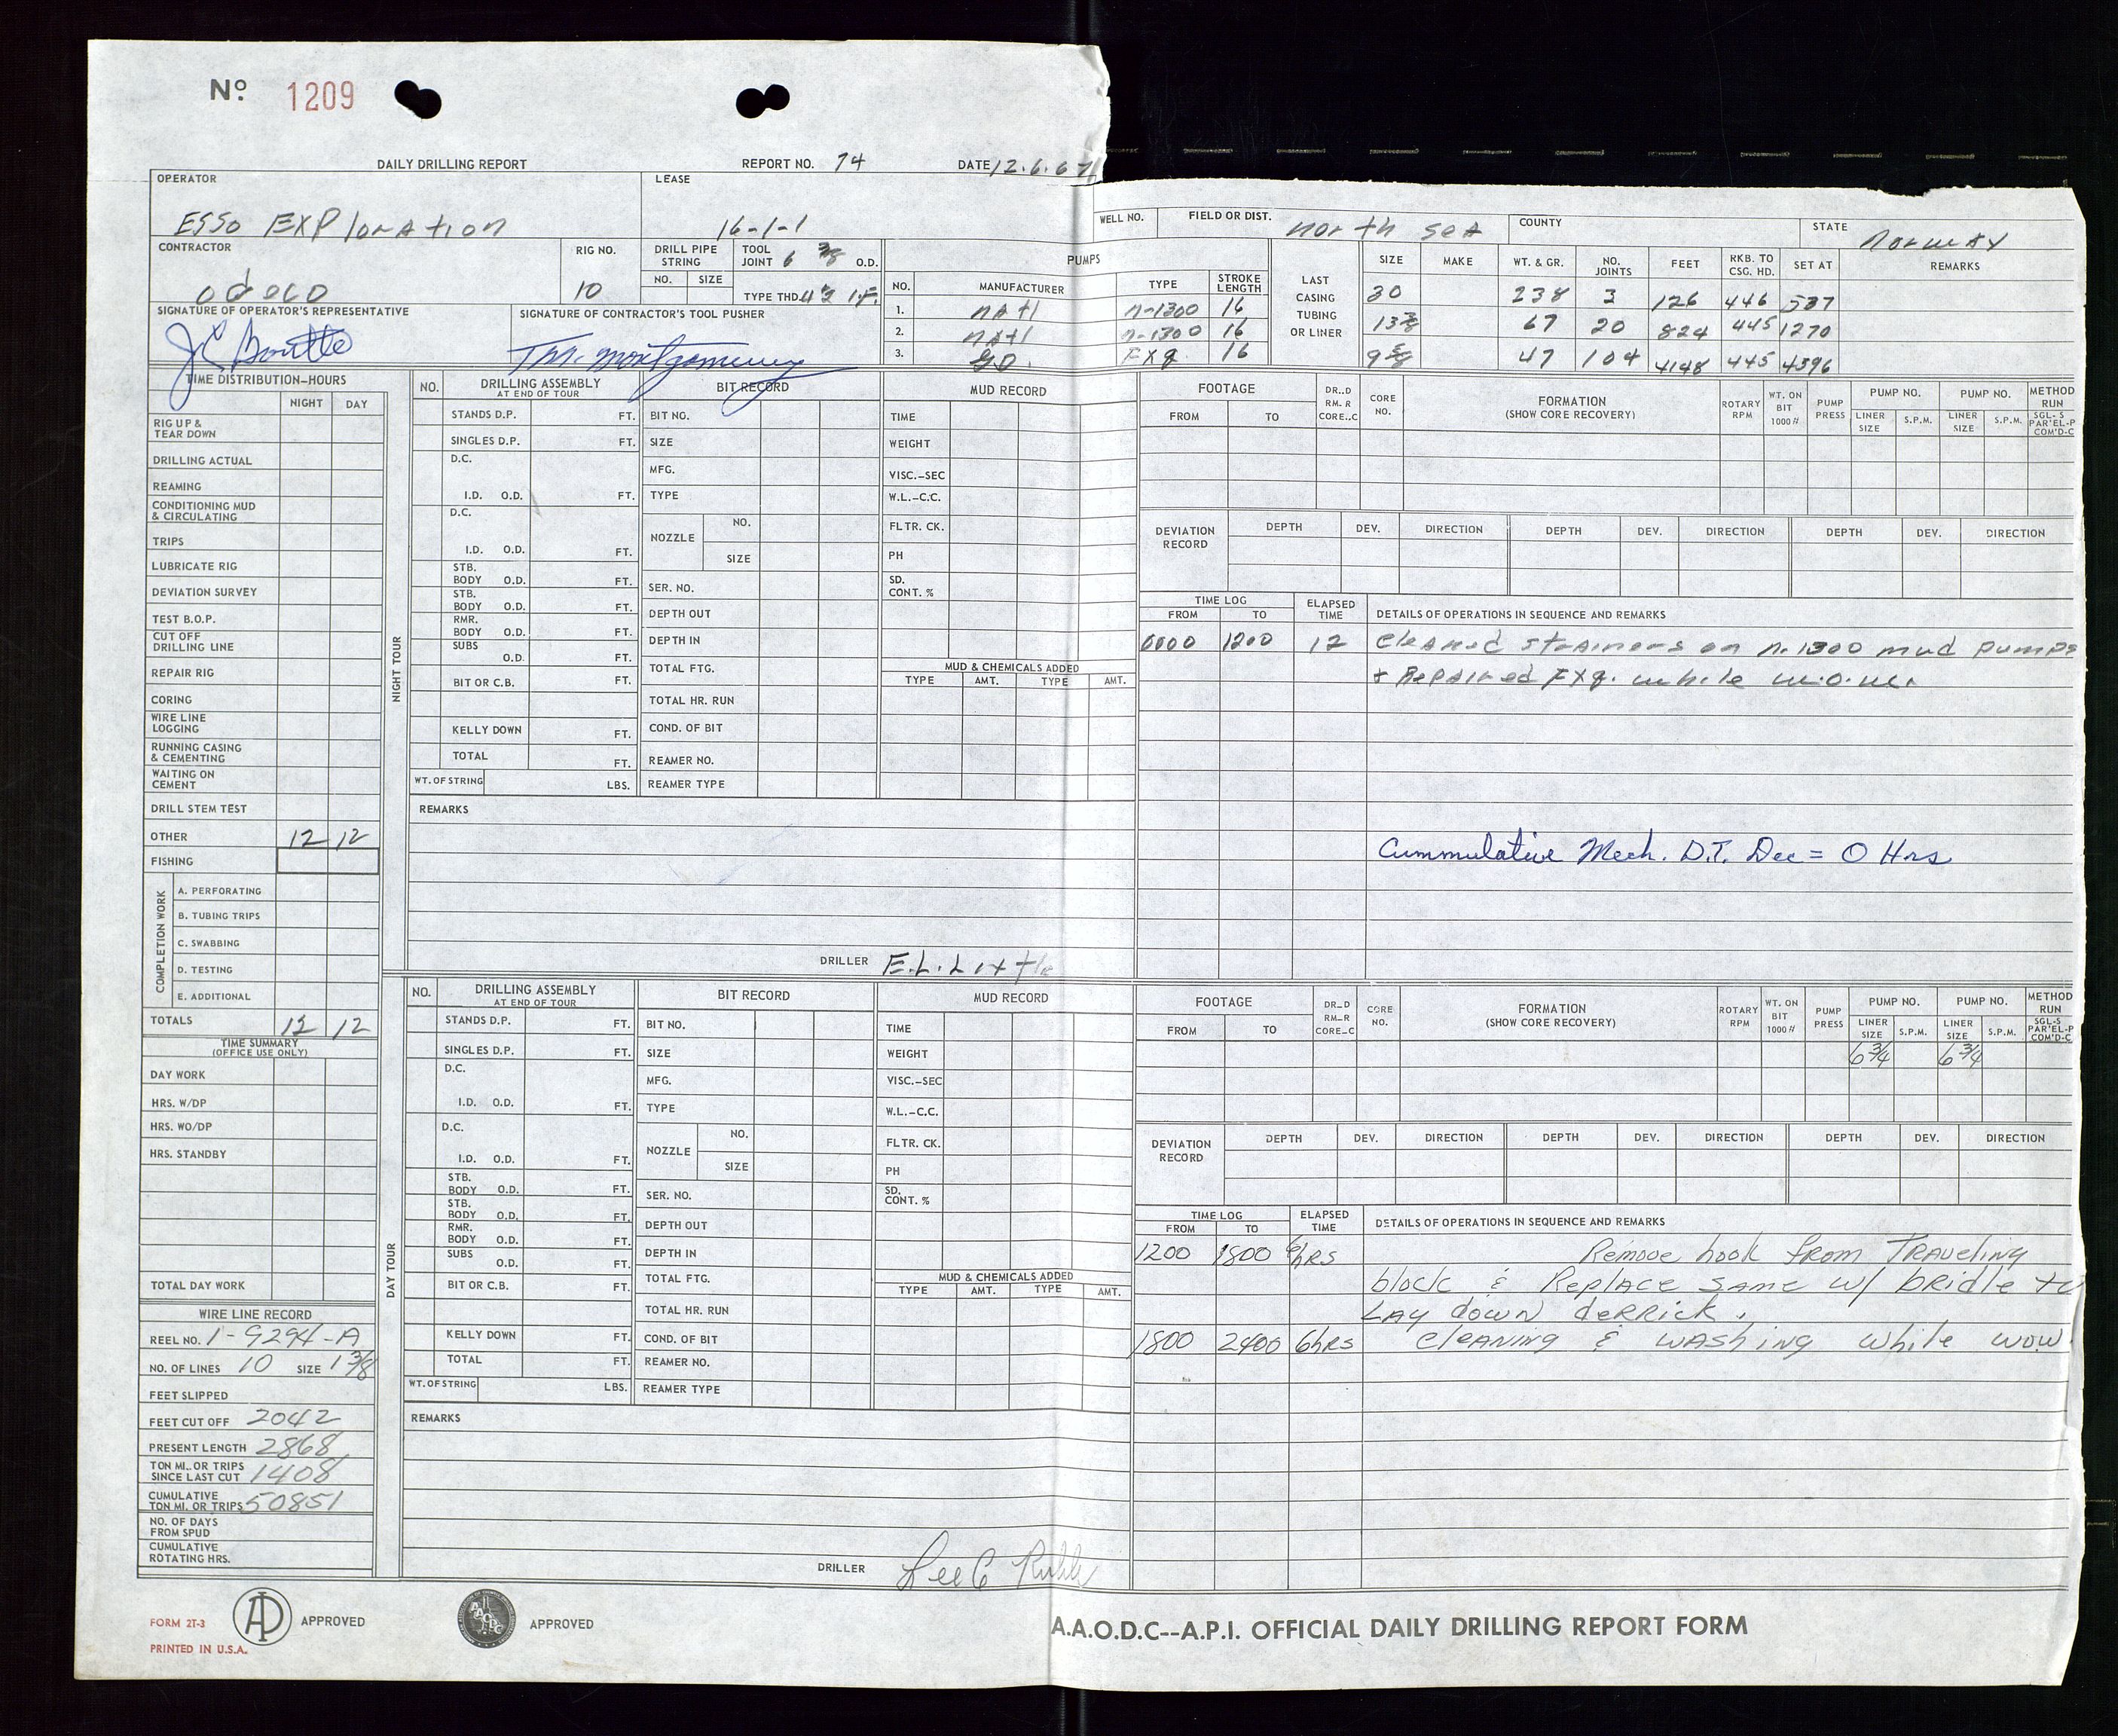 Nº 1209
DAILY DRILLING REPORT REPORT NO. 74 DATE 12.6.67
OPERATOR LEASE WELL NO. FIELD OR DIST. COUNTY STATE
ESSO EXPloration 16-1-1 north sea norway
CONTRACTOR RIG NO. DRILL PIPE STRING TOOL JOINT 6 3/8 O.D. PUMPS
odeco 10 NO. SIZE TYPE THD 4½ I.F.
NO. MANUFACTURER TYPE STROKE LENGTH
1. natl n-1300 16
2. natl n-1300 16
3. GD. FXq 16
LAST CASING TUBING OR LINER
SIZE MAKE WT. & GR. NO. JOINTS FEET RKB. TO CSG. HD. SET AT REMARKS
30 238 3 126 446 537
13 3/8 67 20 824 445 1270
9 5/8 47 104 4148 445 4396
SIGNATURE OF OPERATOR'S REPRESENTATIVE SIGNATURE OF CONTRACTOR'S TOOL PUSHER
T.M. Montgomery
TIME DISTRIBUTION-HOURS
NIGHT DAY
RIG UP & TEAR DOWN
DRILLING ACTUAL
REAMING
CONDITIONING MUD & CIRCULATING
TRIPS
LUBRICATE RIG
DEVIATION SURVEY
TEST B.O.P.
CUT OFF DRILLING LINE
REPAIR RIG
CORING
WIRE LINE LOGGING
RUNNING CASING & CEMENTING
WAITING ON CEMENT
DRILL STEM TEST
OTHER 12 12
FISHING
COMPLETION WORK
A. PERFORATING
B. TUBING TRIPS
C. SWABBING
D. TESTING
E. ADDITIONAL
TOTALS 12 12
TIME SUMMARY
(OFFICE USE ONLY)
DAY WORK
HRS. W/DP
HRS. WO/DP
HRS. STANDBY
TOTAL DAY WORK
WIRE LINE RECORD
REEL NO. 1-9294-A
NO. OF LINES 10 SIZE 1 3/8
FEET SLIPPED
FEET CUT OFF 2042
PRESENT LENGTH 2868
TON MI. OR TRIPS SINCE LAST CUT 1408
CUMULATIVE TON MI. OR TRIPS 50851
NO. OF DAYS FROM SPUD
CUMULATIVE ROTATING HRS.
NIGHT TOUR
NO. DRILLING ASSEMBLY AT END OF TOUR
STANDS D.P. FT.
SINGLES D.P. FT.
D.C.
I.D. O.D. FT.
D.C.
I.D. O.D. FT.
STB. BODY O.D. FT.
STB. BODY O.D. FT.
RMR. BODY O.D. FT.
SUBS O.D. FT.
BIT OR C.B. FT.
KELLY DOWN FT.
TOTAL FT.
WT. OF STRING LBS.
BIT RECORD
BIT NO.
SIZE
MFG.
TYPE
NOZZLE NO.
SIZE
SER. NO.
DEPTH OUT
DEPTH IN
TOTAL FTG.
TOTAL HR. RUN
COND. OF BIT
REAMER NO.
REAMER TYPE
MUD RECORD
TIME
WEIGHT
VISC.-SEC
W.L.-C.C.
FLTR. CK.
PH
SD. CONT. %
MUD & CHEMICALS ADDED
TYPE AMT. TYPE AMT.
REMARKS
DRILLER E.L. Little
FOOTAGE DR..D RM. R CORE..C CORE NO. FORMATION (SHOW CORE RECOVERY) ROTARY RPM WT. ON BIT 1000 # PUMP PRESS PUMP NO. PUMP NO. METHOD RUN
FROM TO LINER SIZE S.P.M. LINER SIZE S.P.M. SGL-S PAR'EL-P COM'D-C
DEVIATION RECORD DEPTH DEV. DIRECTION DEPTH DEV. DIRECTION DEPTH DEV. DIRECTION
TIME LOG ELAPSED TIME DETAILS OF OPERATIONS IN SEQUENCE AND REMARKS
FROM TO
0000 1200 12 Cleaned strainers on n.1300 mud pumps
+ Repaired FXq. while w.o.w.
Cummulative Mech. D.T. Dec = 0 Hrs
DAY TOUR
NO. DRILLING ASSEMBLY AT END OF TOUR
STANDS D.P. FT.
SINGLES D.P. FT.
D.C.
I.D. O.D. FT.
D.C.
I.D. O.D. FT.
STB. BODY O.D. FT.
STB. BODY O.D. FT.
RMR. BODY O.D. FT.
SUBS O.D. FT.
BIT OR C.B. FT.
KELLY DOWN FT.
TOTAL FT.
WT. OF STRING LBS.
BIT RECORD
BIT NO.
SIZE
MFG.
TYPE
NOZZLE NO.
SIZE
SER. NO.
DEPTH OUT
DEPTH IN
TOTAL FTG.
TOTAL HR. RUN
COND. OF BIT
REAMER NO.
REAMER TYPE
MUD RECORD
TIME
WEIGHT
VISC.-SEC
W.L.-C.C.
FLTR. CK.
PH
SD. CONT. %
MUD & CHEMICALS ADDED
TYPE AMT. TYPE AMT.
REMARKS
DRILLER Lee C
FOOTAGE DR..D RM..R CORE..C CORE NO. FORMATION (SHOW CORE RECOVERY) ROTARY RPM WT. ON BIT 1000 # PUMP PRESS PUMP NO. PUMP NO. METHOD RUN
FROM TO LINER SIZE S.P.M. LINER SIZE S.P.M. SGL-S PAR'EL-P COM'D-C
6 3/4 6 3/4
DEVIATION RECORD DEPTH DEV. DIRECTION DEPTH DEV. DIRECTION DEPTH DEV. DIRECTION
TIME LOG ELAPSED TIME DETAILS OF OPERATIONS IN SEQUENCE AND REMARKS
FROM TO
1200 1800 6hrs Remove hook from Traveling
block & Replace same w/ bridle to
Lay down derrick.
1800 2400 6hrs cleaning & washing while wow.
FORM 2T-3
PRINTED IN U.S.A.
API APPROVED
AAODC APPROVED
A.A.O.D.C--A.P.I. OFFICIAL DAILY DRILLING REPORT FORM